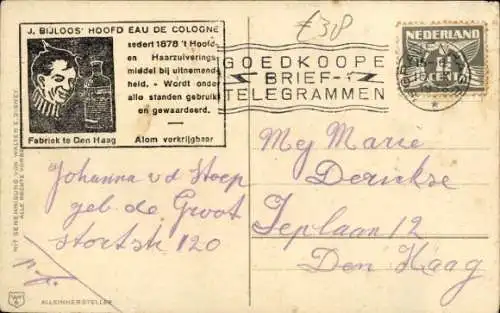 J. BIJLOOS' HOOFD EAU DE COLOGNE
sedert 1878 't Hoofd-
en Haarzuiverings-
middel bij uitnemend-
heid. - Wordt onder
alle standen gebruikt
en gewaardeerd.
Fabriek te Den Haag Alom verkrijgbaar
GOEDKOOPE
BRIEF-
TELEGRAMMEN
NEDERLAND
€38
Johanna v d Stoep
geb de Groot
120
Mej Marie
Derickse
12
Den Haag
MIT GENEHMIGUNG VON WALTER E. DISNEY
ALLE RECHTE
ALLEINHERSTELLER